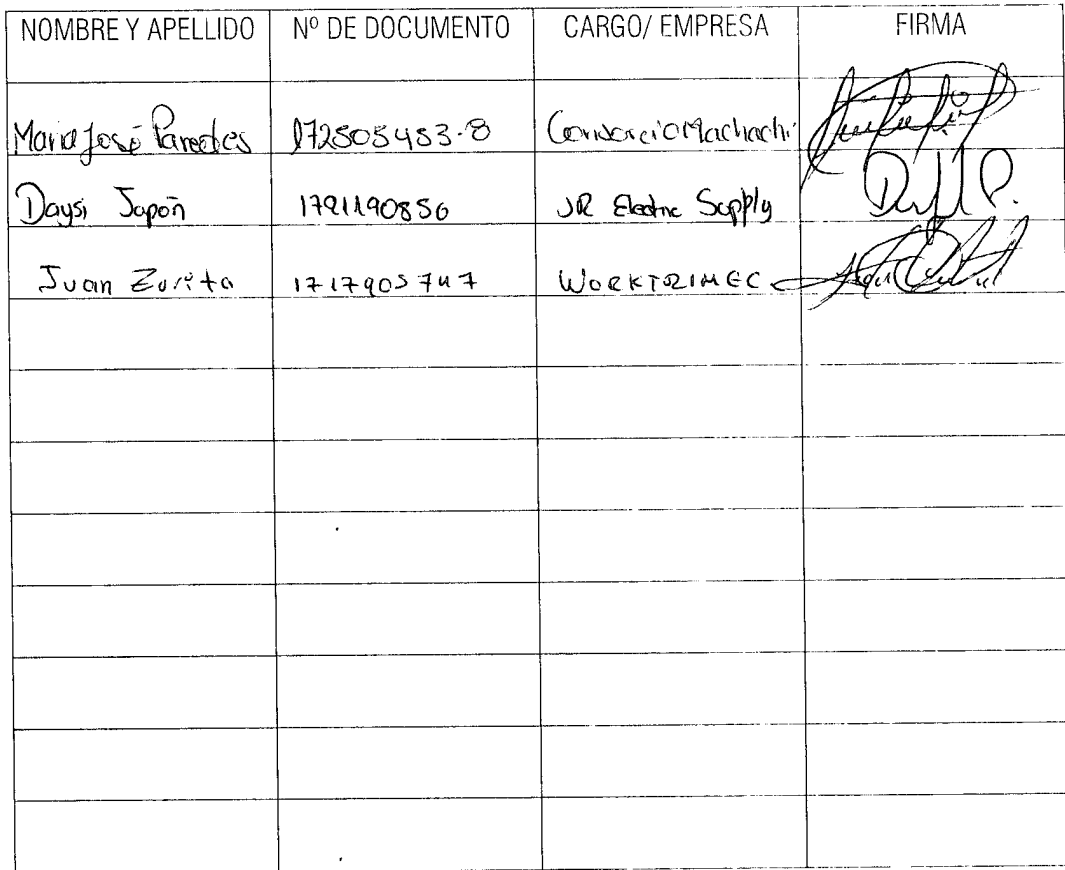 NOMBRE Y APELLIDO Nº DE DOCUMENTO CARGO/ EMPRESA FIRMA
Maria José Paredes 172505453-8 Consorcio Machachi
Daysi Japón 1791190850 JR Electric Supply
Juan Zurita 1717905747 WORKTRIMEC